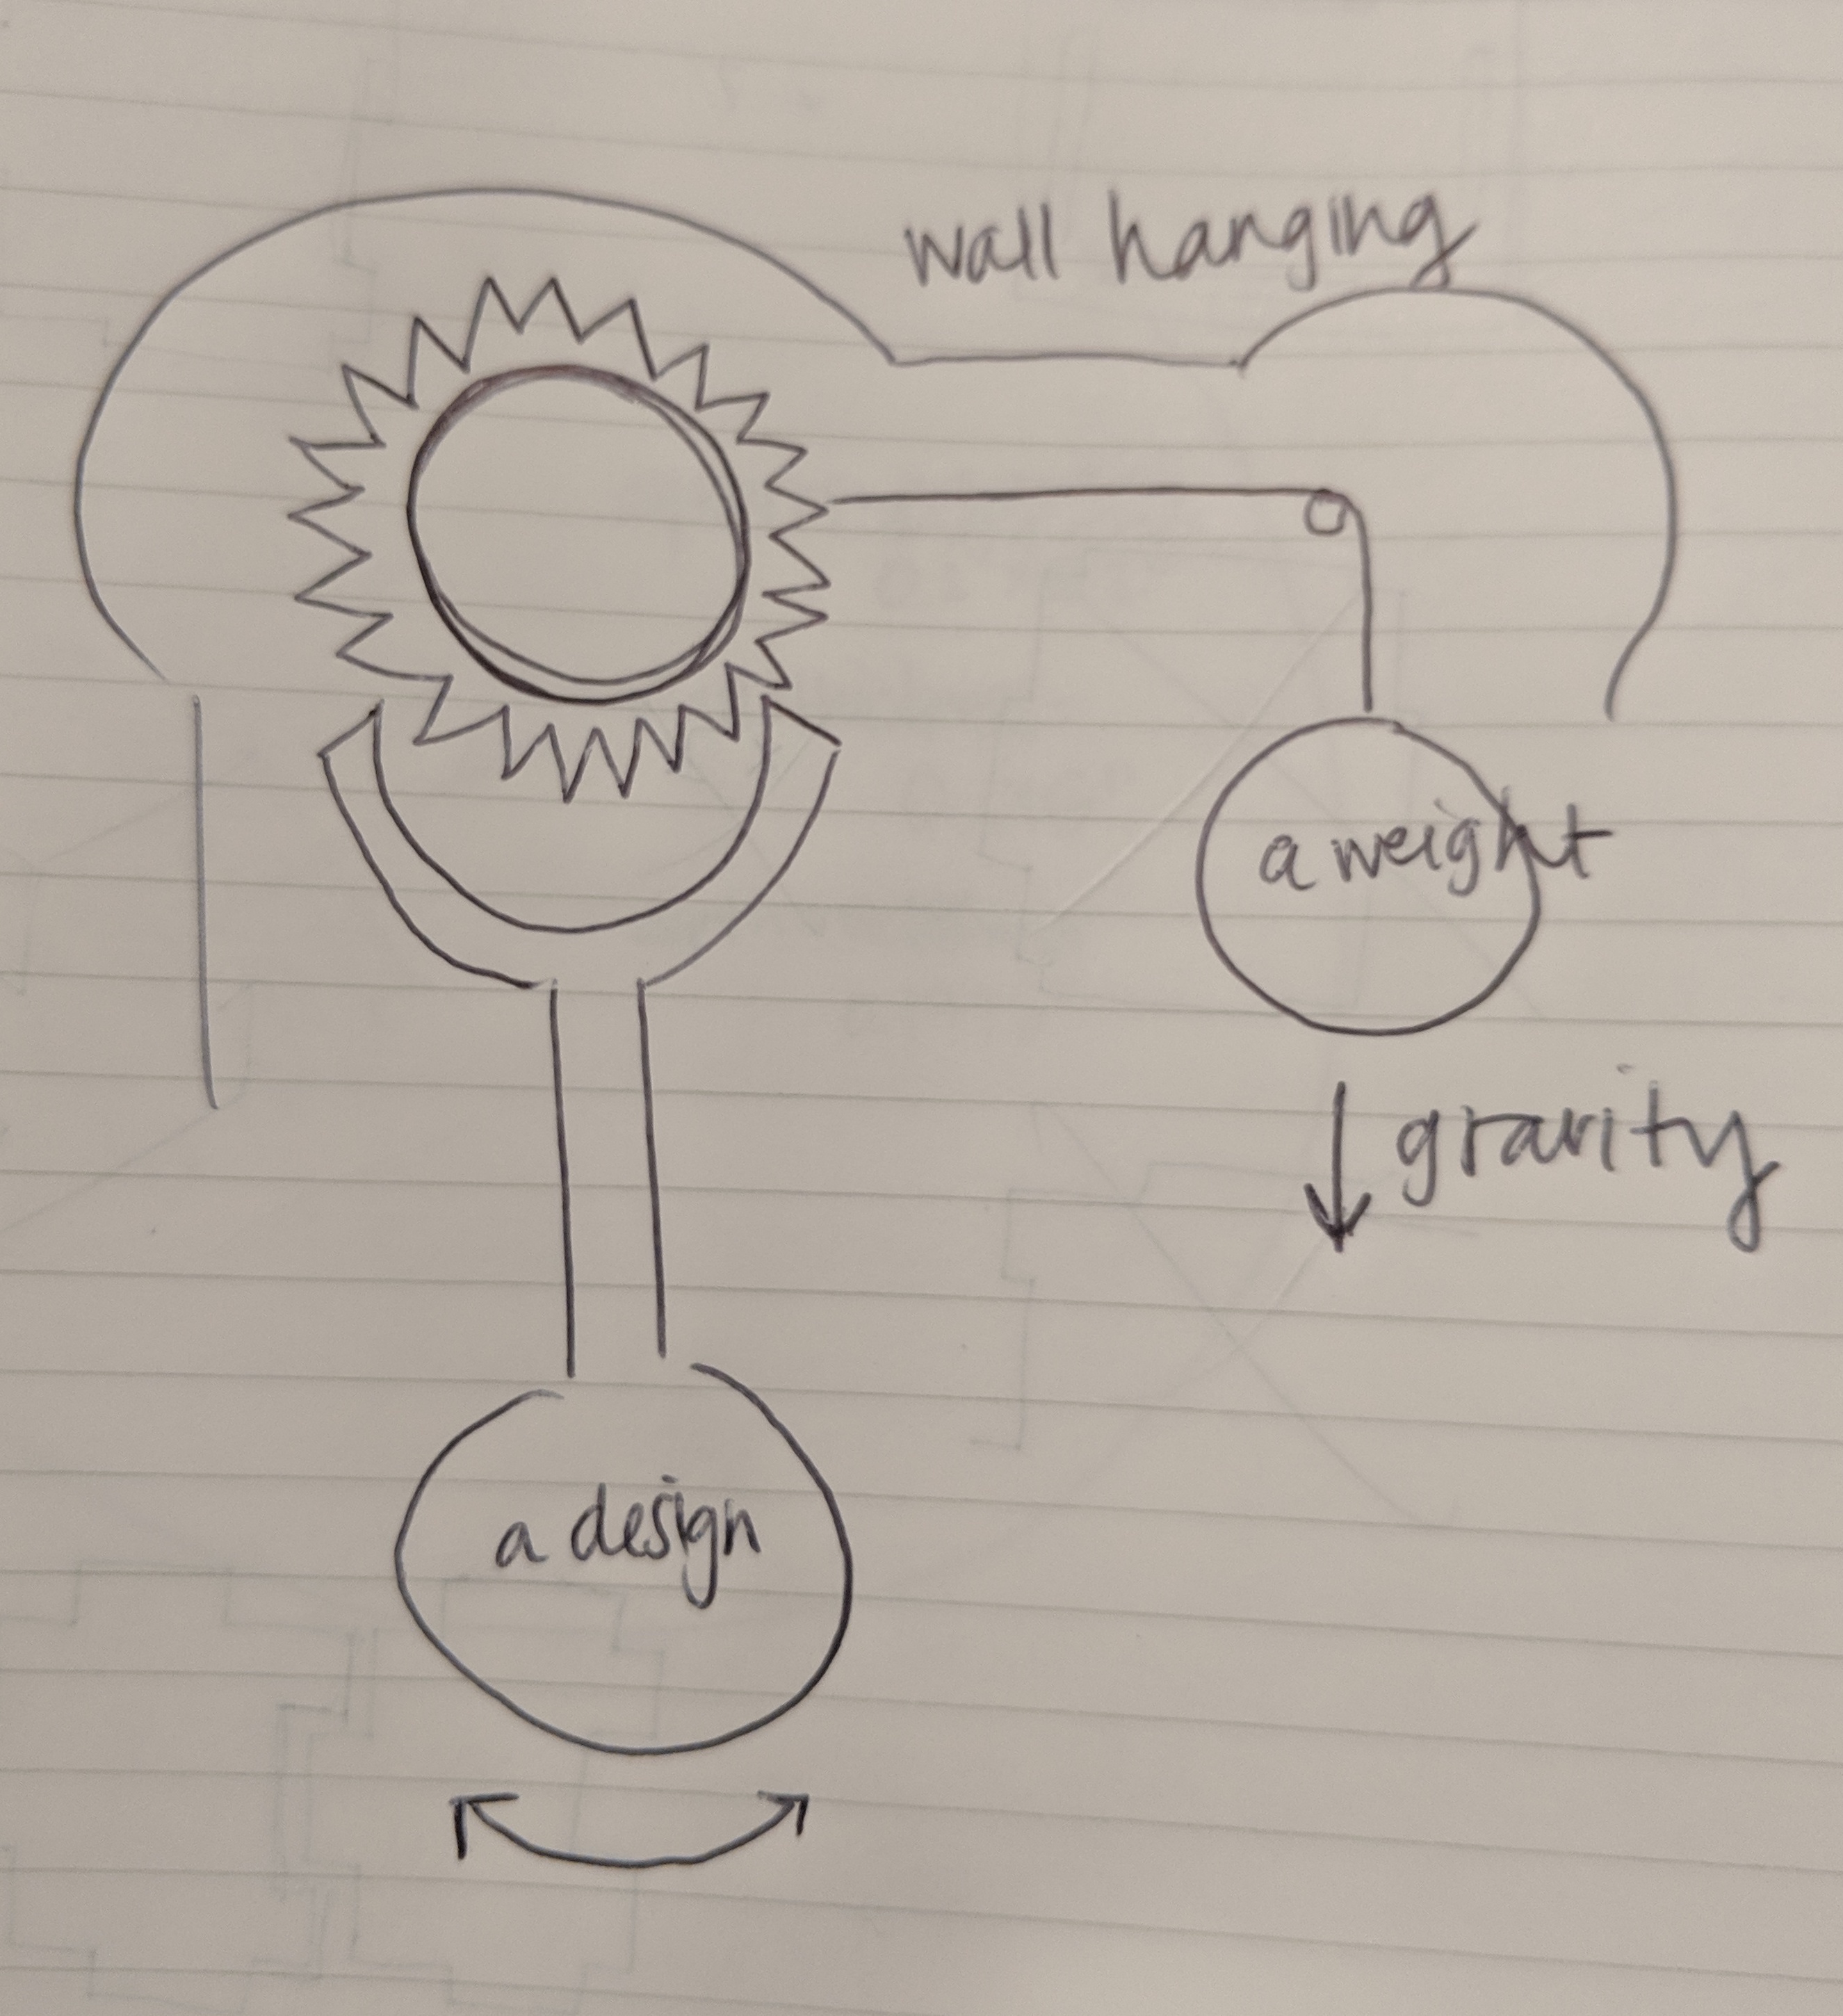 wall hanging
a weight
gravity
a design